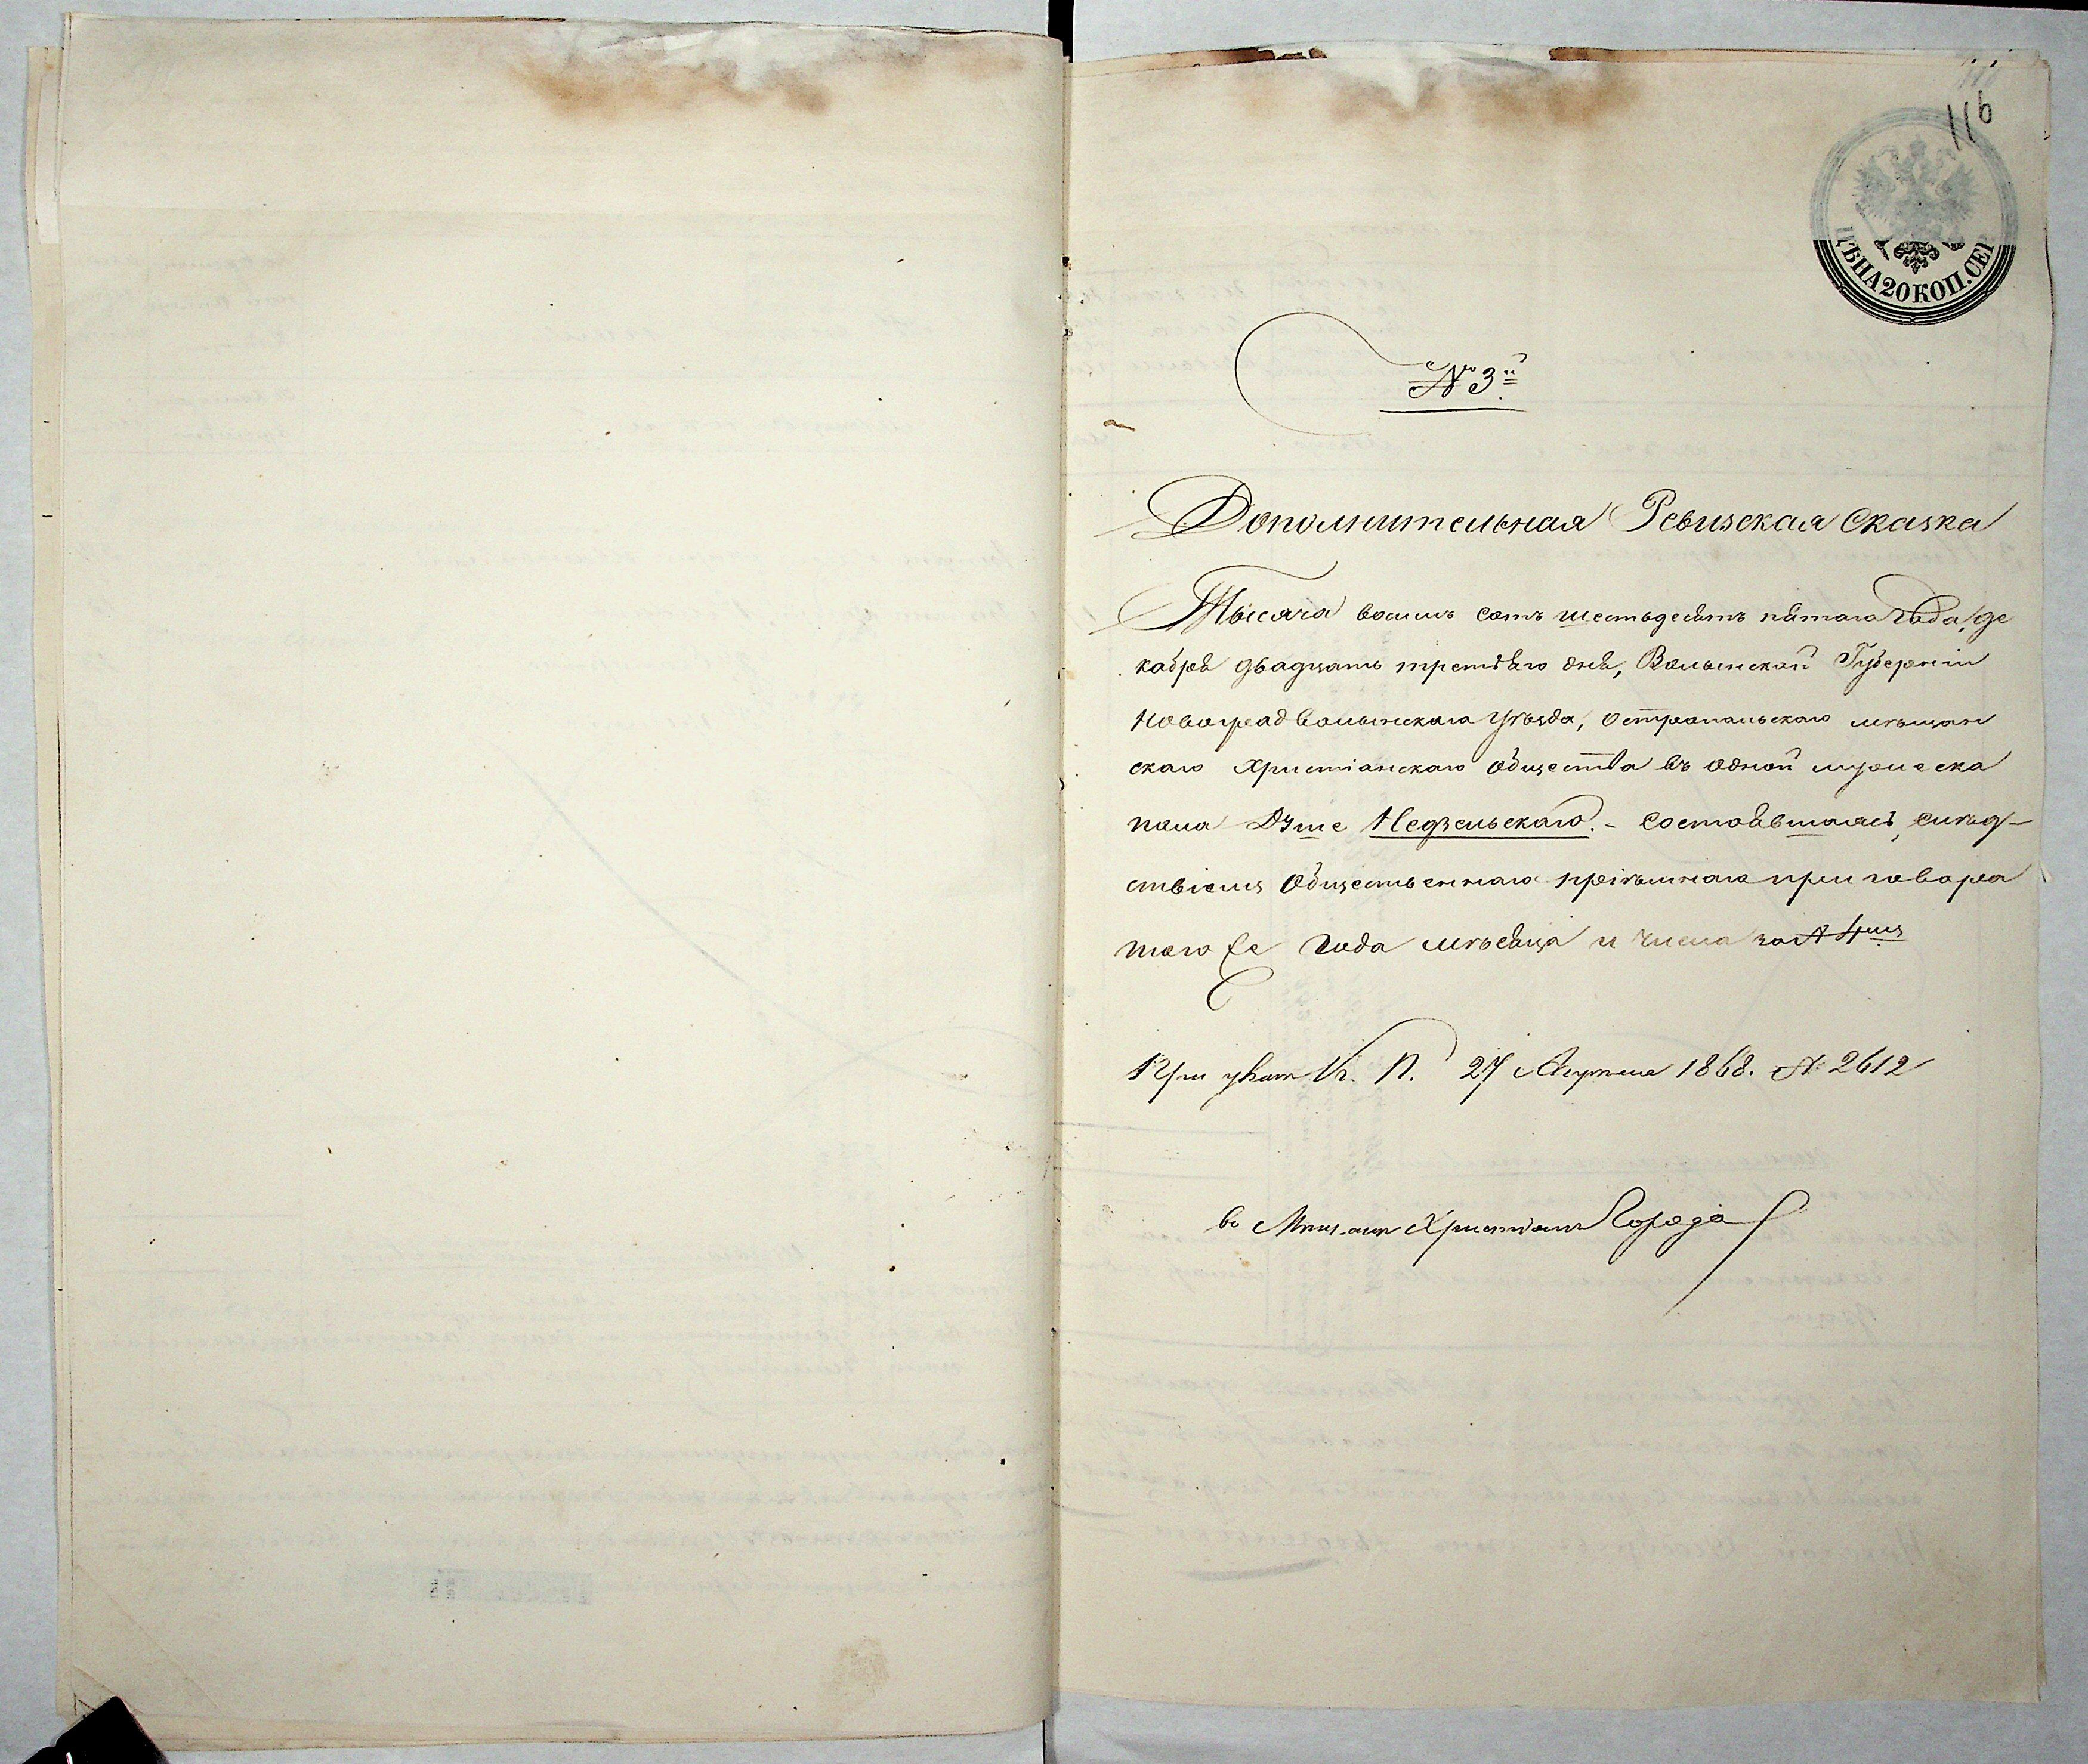 116
ЦѢНА 20 КОП. СЕР
№ 3й
Дополнительная Ревизская Сказка
Тысяча восемь сотъ шестьдесятъ пятаго Года, де
кабря двадцать третьяго дня, Волынской Губерніи
Новоградволынскаго уѣзда, Остропольскаго мѣщан
скаго Христіанскаго Общества въ одной мужеска
пола Душе Недзельскаго. - Состоявшаяся, слѣд-
ствіемъ Общественнаго пріемнаго приговора
того же Года мѣсяца и числа за № 4мъ
При указ К. П. 27 Апреля 1868. № 2612
во Мѣщане Христіане Города